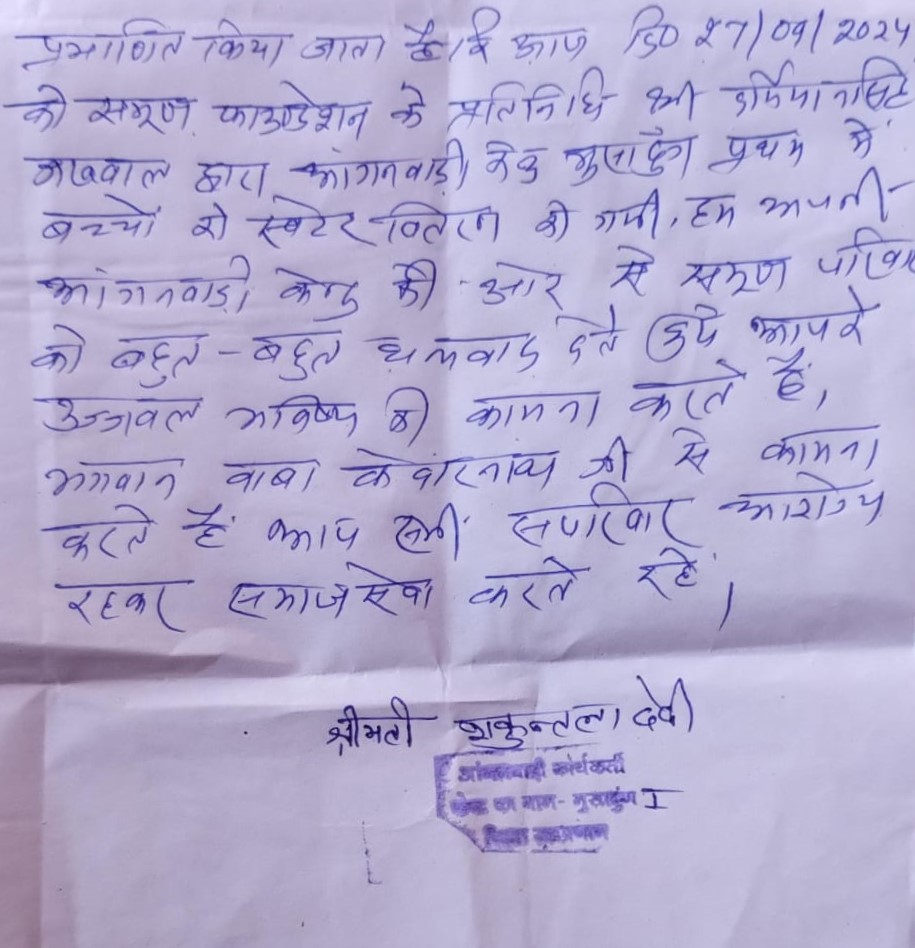 प्रमाणित किया जाता है कि आज दि0 27/09/2024
को समूण फाउण्डेशन के प्रतिनिधि श्री
द्वारा आंगनवाड़ी केन्द्र मुसाढुंग प्रथम में
बच्चों को स्वेटर वितरण की गयी, हम अपनी
आंगनवाड़ी केन्द्र की ओर से समूण परिवार
को बहुत - बहुत धन्यवाद देते हुये आपके
उज्जवल भविष्य की कामना करते हैं,
भगवान बाबा केदारनाथ जी से कामना
करते हैं आप सभी सपरिवार आरोग्य
रहकर समाज सेवा करते रहें।
श्रीमती शकुन्तला देवी
आंगनवाड़ी कार्यकर्ती
केन्द्र का नाम - मुसाढुंग I